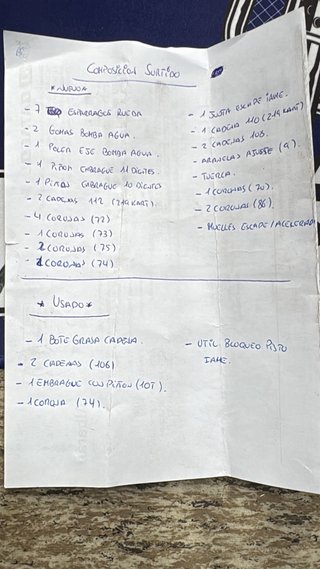 COMPOSICION SURTIDO
*NUEVO*
- 7 ESPARRAGOS RUEDA
- 2 GOMAS BOMBA AGUA.
- 1 POLEA EJE BOMBA AGUA.
- 1 PIÑON EMBRAGUE 11 DIENTES
- 1 PIÑON EMBRAGUE 10 DIENTES
- 2 CADENAS 112 (219 KART).
- 4 CORONAS (72)
- 1 CORONAS (73)
- 2 CORONAS (75)
- 2 CORONAS (74)
- 1 JUNTA ESCAPE IAME.
- 1 CADENA 110 (219 KART)
- 2 CADENAS 108.
- ARANDELAS AJUSTE (9).
- TUERCA.
- 1 CORONAS (70).
- 2 CORONAS (86).
- MUELLES ESCAPE / ACELERADOR
* USADO *
- 1 BOTE GRASA CADENA.
- 2 CADENAS (106)
- 1 EMBRAGUE CON PIÑON (10T).
- 1 CORONA (74).
- UTIL BLOQUEO PISTO
IAME.